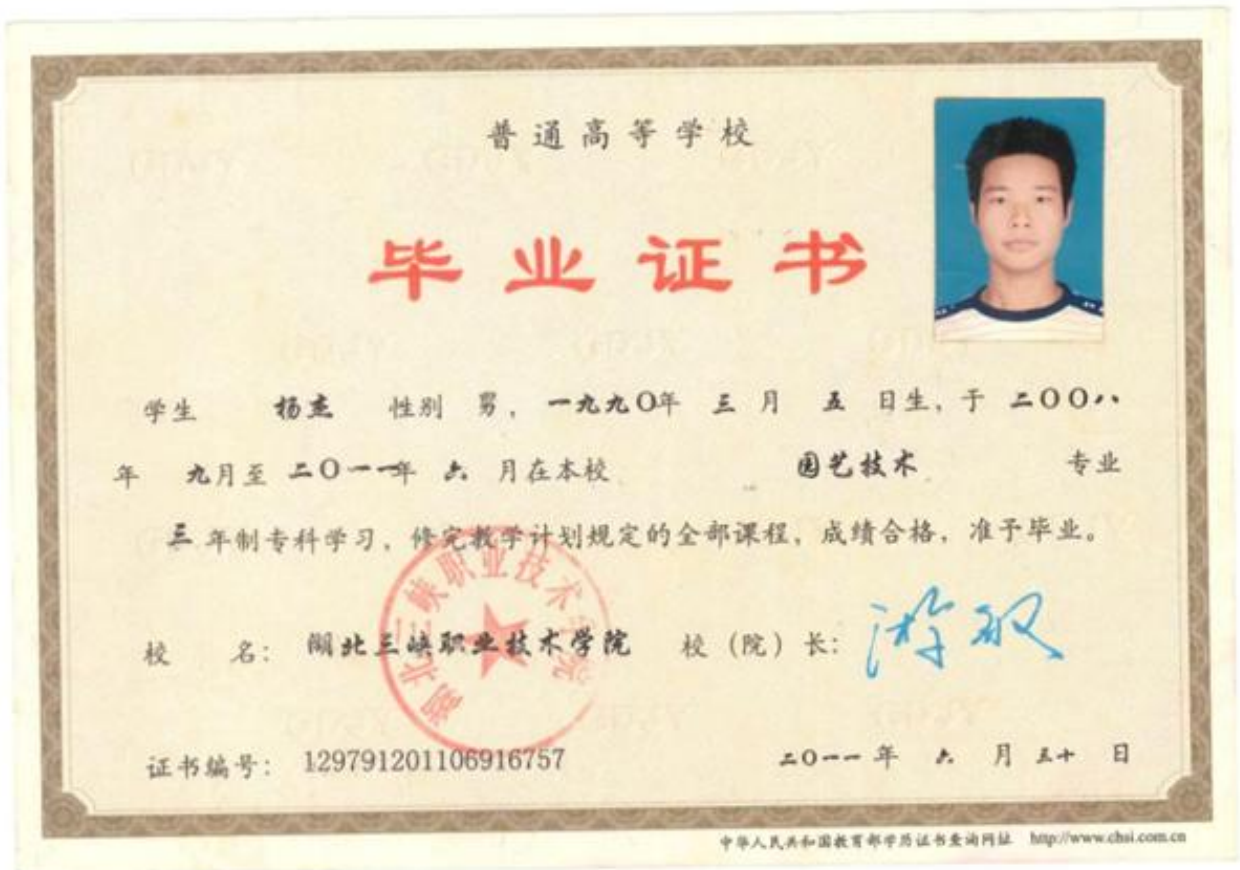 普通高等学校
毕业证书
学生 杨杰 性别 男，一九九〇年 三 月 五 日生，于 二〇〇八
年 九月至 二〇一一年 六 月在本校 园艺技术 专业
三 年制专科学习，修完教学计划规定的全部课程，成绩合格，准予毕业。
湖北三峡职业技术学院
校 名：湖北三峡职业技术学院 校（院）长：游敏
证书编号：129791201106916757 二〇一一 年 六 月 三十 日
中华人民共和国教育部学历证书查询网址 http://www.chsi.com.cn